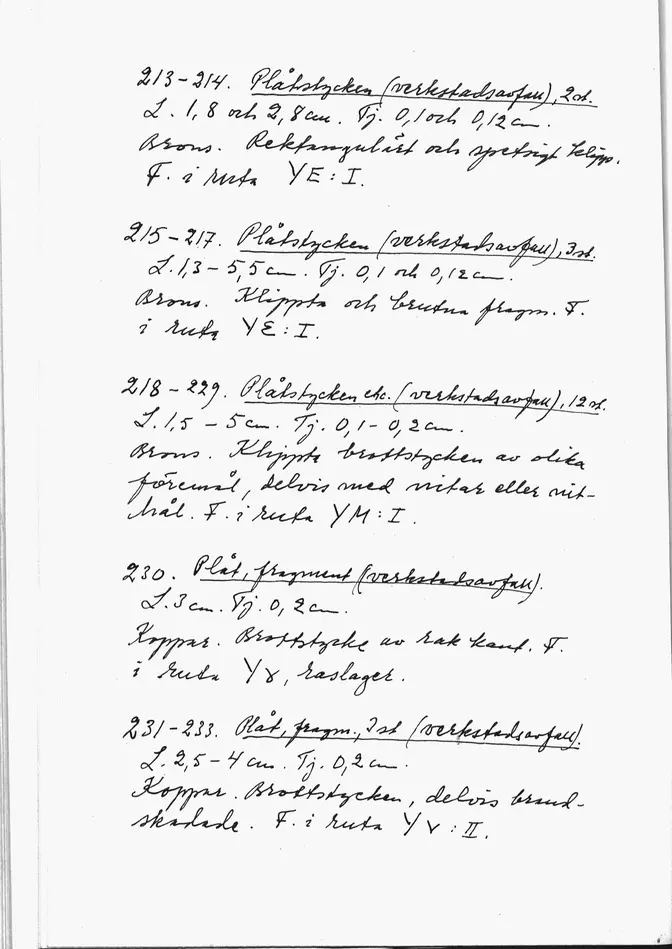 213-214. Plåtstycken (verkstadsavfall), 2 st.
L. 1,8 och 2,8 cm. Tj. 0,1 och 0,12 cm.
Brons. Rektangulärt och spetsigt klipp.
F. i ruta YE:I.
215-217. Plåtstycken (verkstadsavfall), 3 st.
L. 1,3-5,5 cm. Tj. 0,1 och 0,12 cm.
Brons. Klippta och brutna fragm. F.
i ruta YE:I.
218-229. Plåtstycken etc. (verkstadsavfall), 12 st.
L. 1,5-5 cm. Tj. 0,1-0,2 cm.
Brons. Klippta brottstycken av olika
föremål, delvis med nitar eller nit-
hål. F. i ruta YM:I.
230. Plåt, fragment (verkstadsavfall).
L. 3 cm. Tj. 0,2 cm.
Koppar. Brottstycke av rak kant. F.
i ruta YX, raslager.
231-233. Plåt, fragm., 3 st (verkstadsavfall).
L. 2,5-4 cm. Tj. 0,2 cm.
Koppar. Brottstycken, delvis brand-
skadade. F. i ruta YV:II.